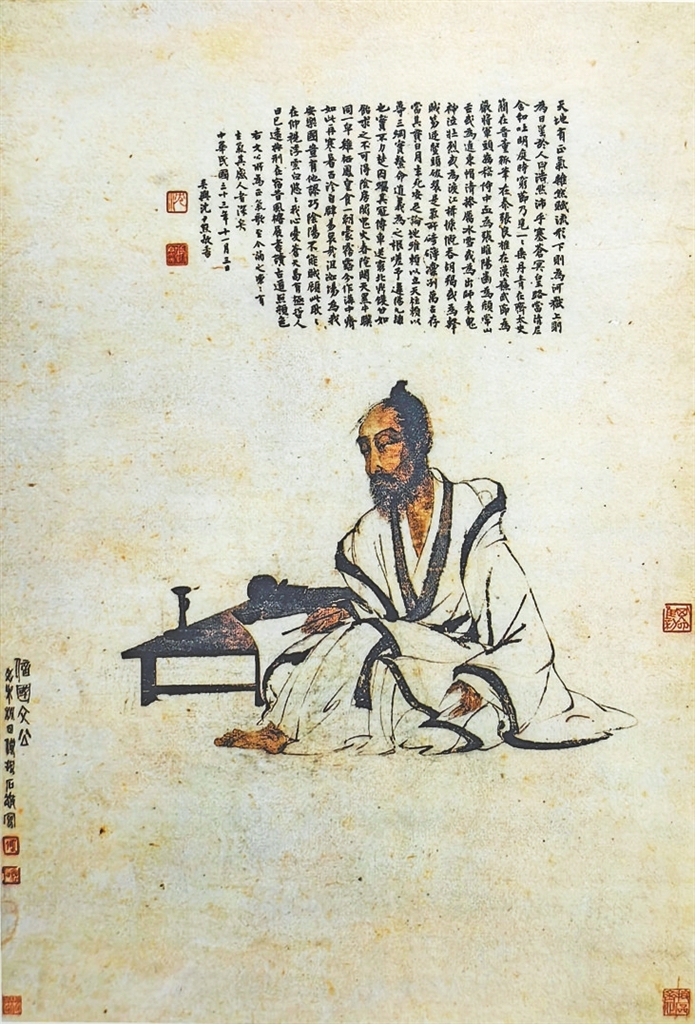 天地有正氣雜然賦流形下則為河嶽上則
為日星於人曰浩然沛乎塞蒼冥皇路當清夷
含和吐明庭時窮節乃見一一垂丹青在齊太史
簡在晉董狐筆在秦張良椎在漢蘇武節為
嚴將軍頭為嵇侍中血為張睢陽齒為顏常山
舌或為遼東帽清操厲冰雪或為出師表鬼
神泣壯烈或為渡江楫慷慨吞胡羯或為擊
賊笏逆豎頭破裂是氣所磅礴凜冽萬古存
當其貫日月生死安足論地維賴以立天柱賴以
尊三綱實繫命道義為之根嗟予遘陽九隸
也實不力楚囚纓其冠傳車送窮北鼎鑊甘如
飴求之不可得陰房闃鬼火春院閟天黑牛驥
同一皁雞棲鳳皇食一朝蒙霧露分作溝中瘠
如此再寒暑百沴自辟易哀哉沮洳場為我
安樂國豈有他謬巧陰陽不能賊顧此耿耿
在仰視浮雲白悠悠我心憂蒼天曷有極哲人
日已遠典刑在夙昔風簷展書讀古道照顏色
右文公所為正氣歌至今誦之凜凜有
生氣其感人者深矣
中華民國三十三年十一月三日
吳興沈尹默敬書
信國文公